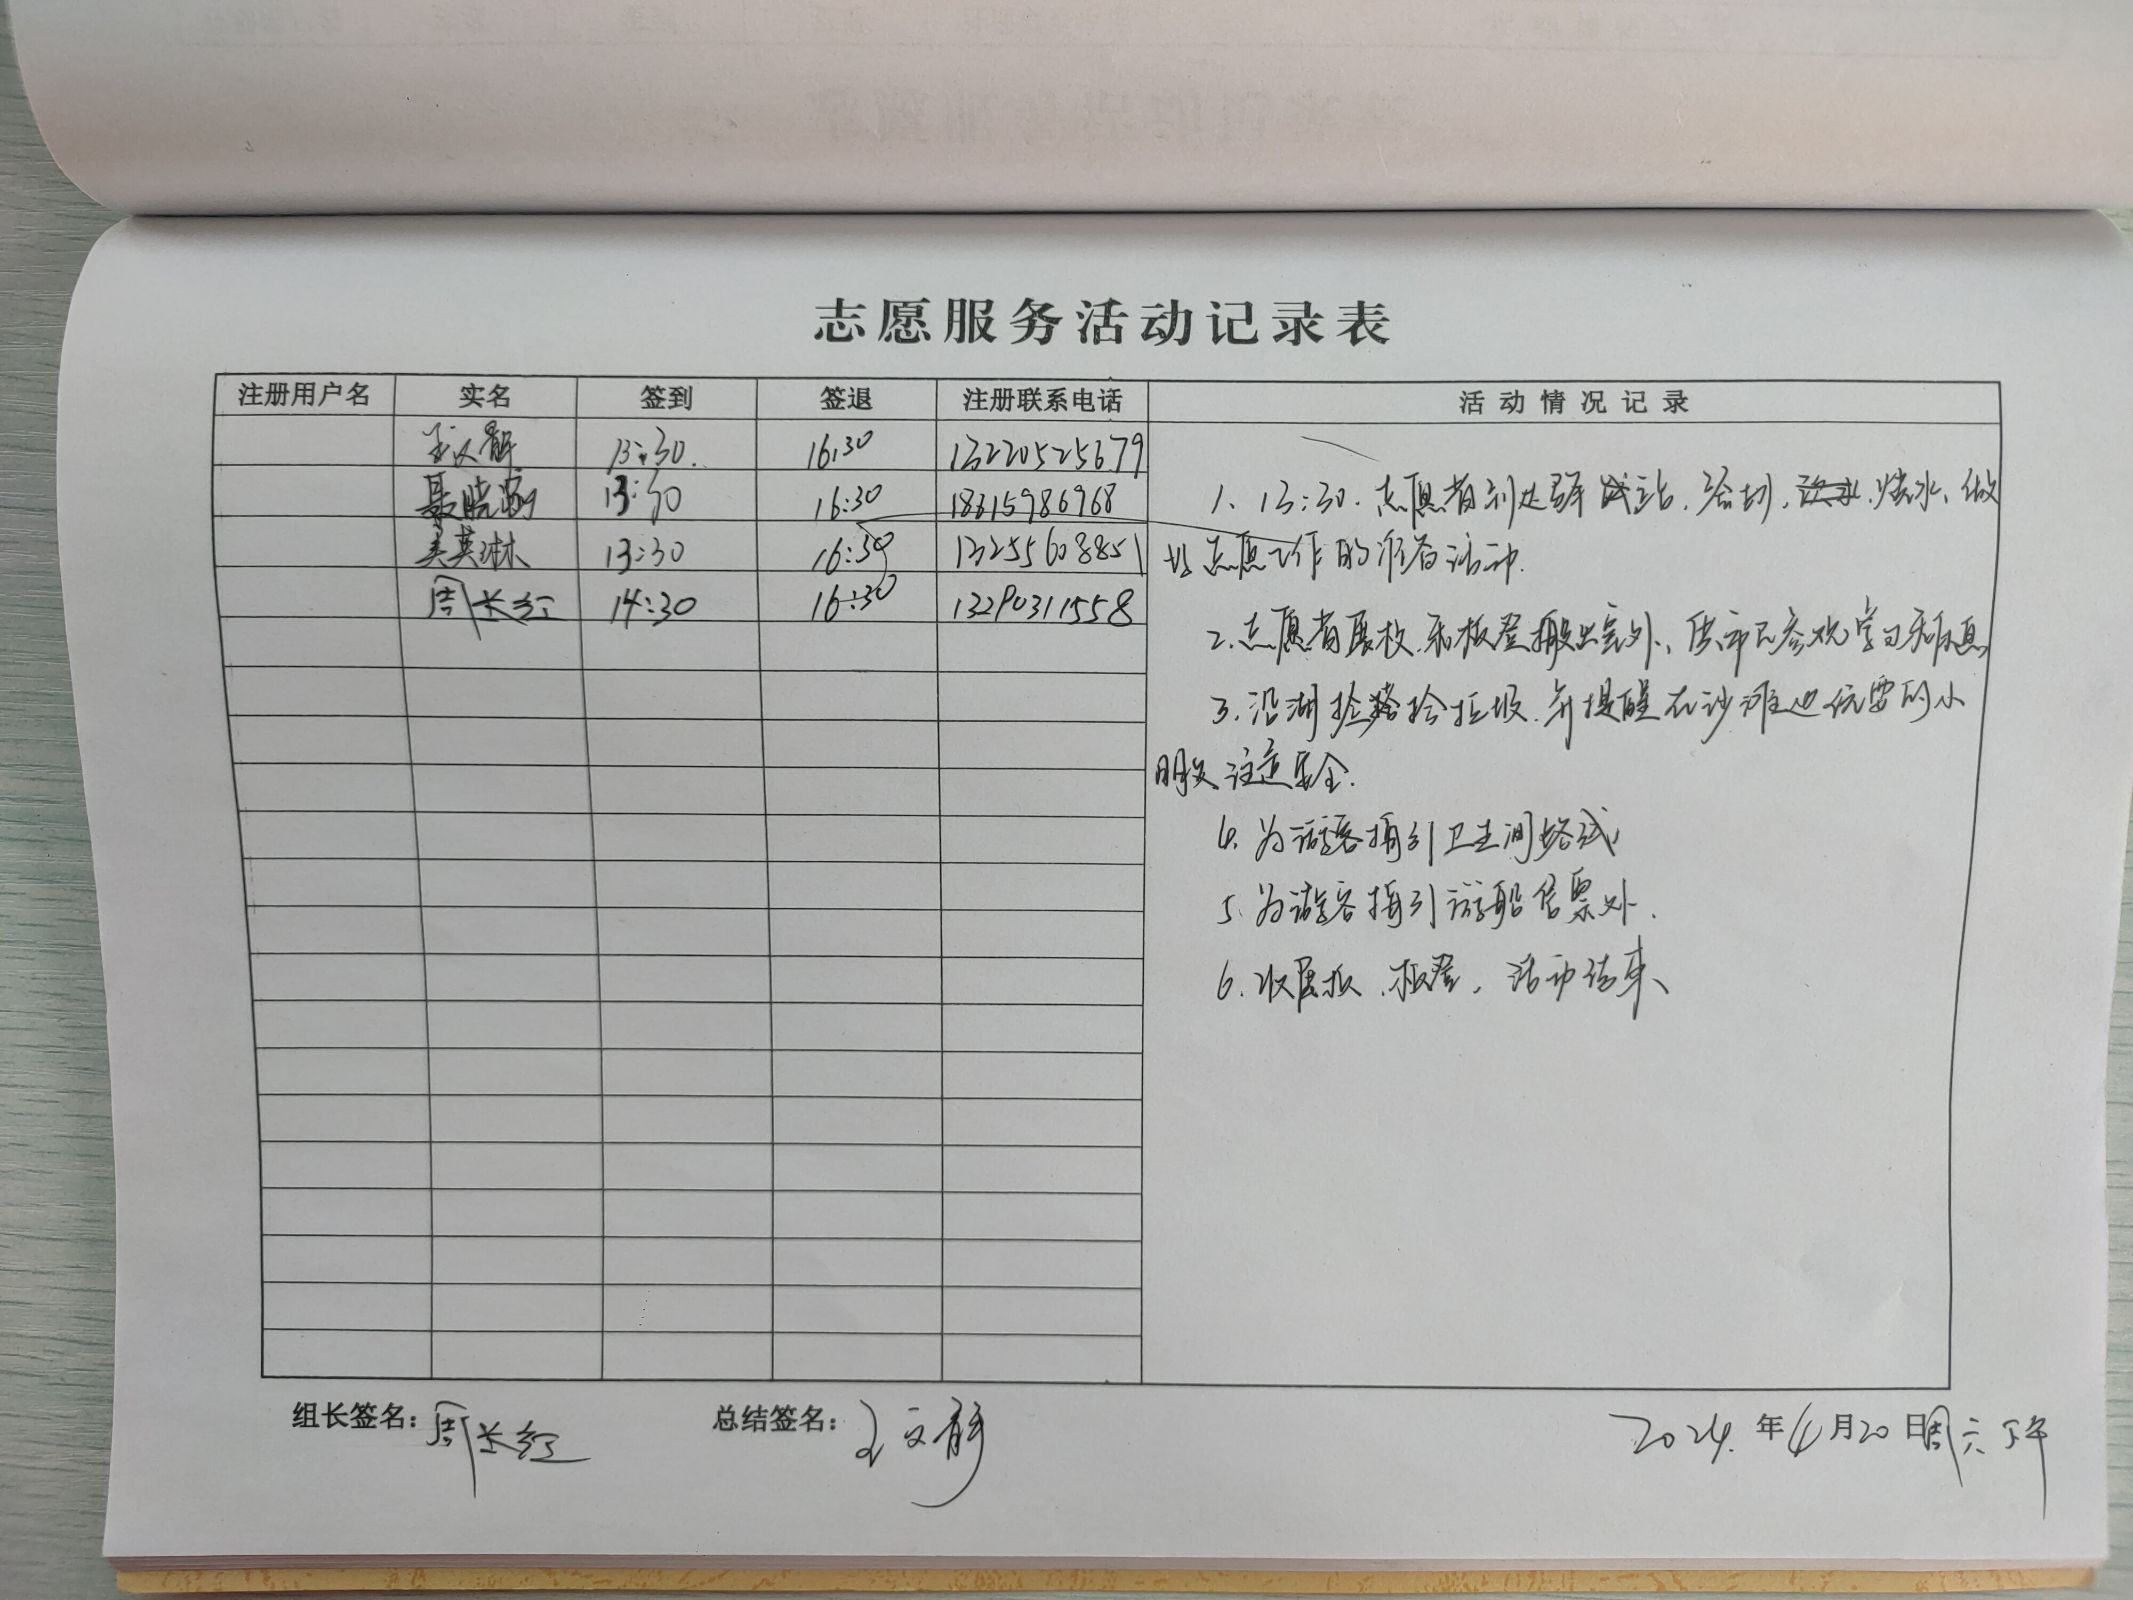 志愿服务活动记录表
注册用户名 实名 签到 签退 注册联系电话 活动情况记录
王文静 13:30 16:30 13220525679
聂晓 13:30 16:30 18315986968
英琳 13:30 16:30 13255608851
周长红 14:30 16:30 13290311558
1、13:30.志愿者到达驿站. 烧水、做
志愿工作的准备活动.
2.志愿者展板.和板凳搬出室外、供市民参观学习和休息
3.沿湖捡拾垃圾.并提醒在沙滩边玩耍的小
朋友注意安全.
4.为游客指引卫生间路线
5、为游客指引游船售票处.
6.收展板.板凳,活动结束、
组长签名:周长红 总结签名:王文静 2024年4月20日周六下午